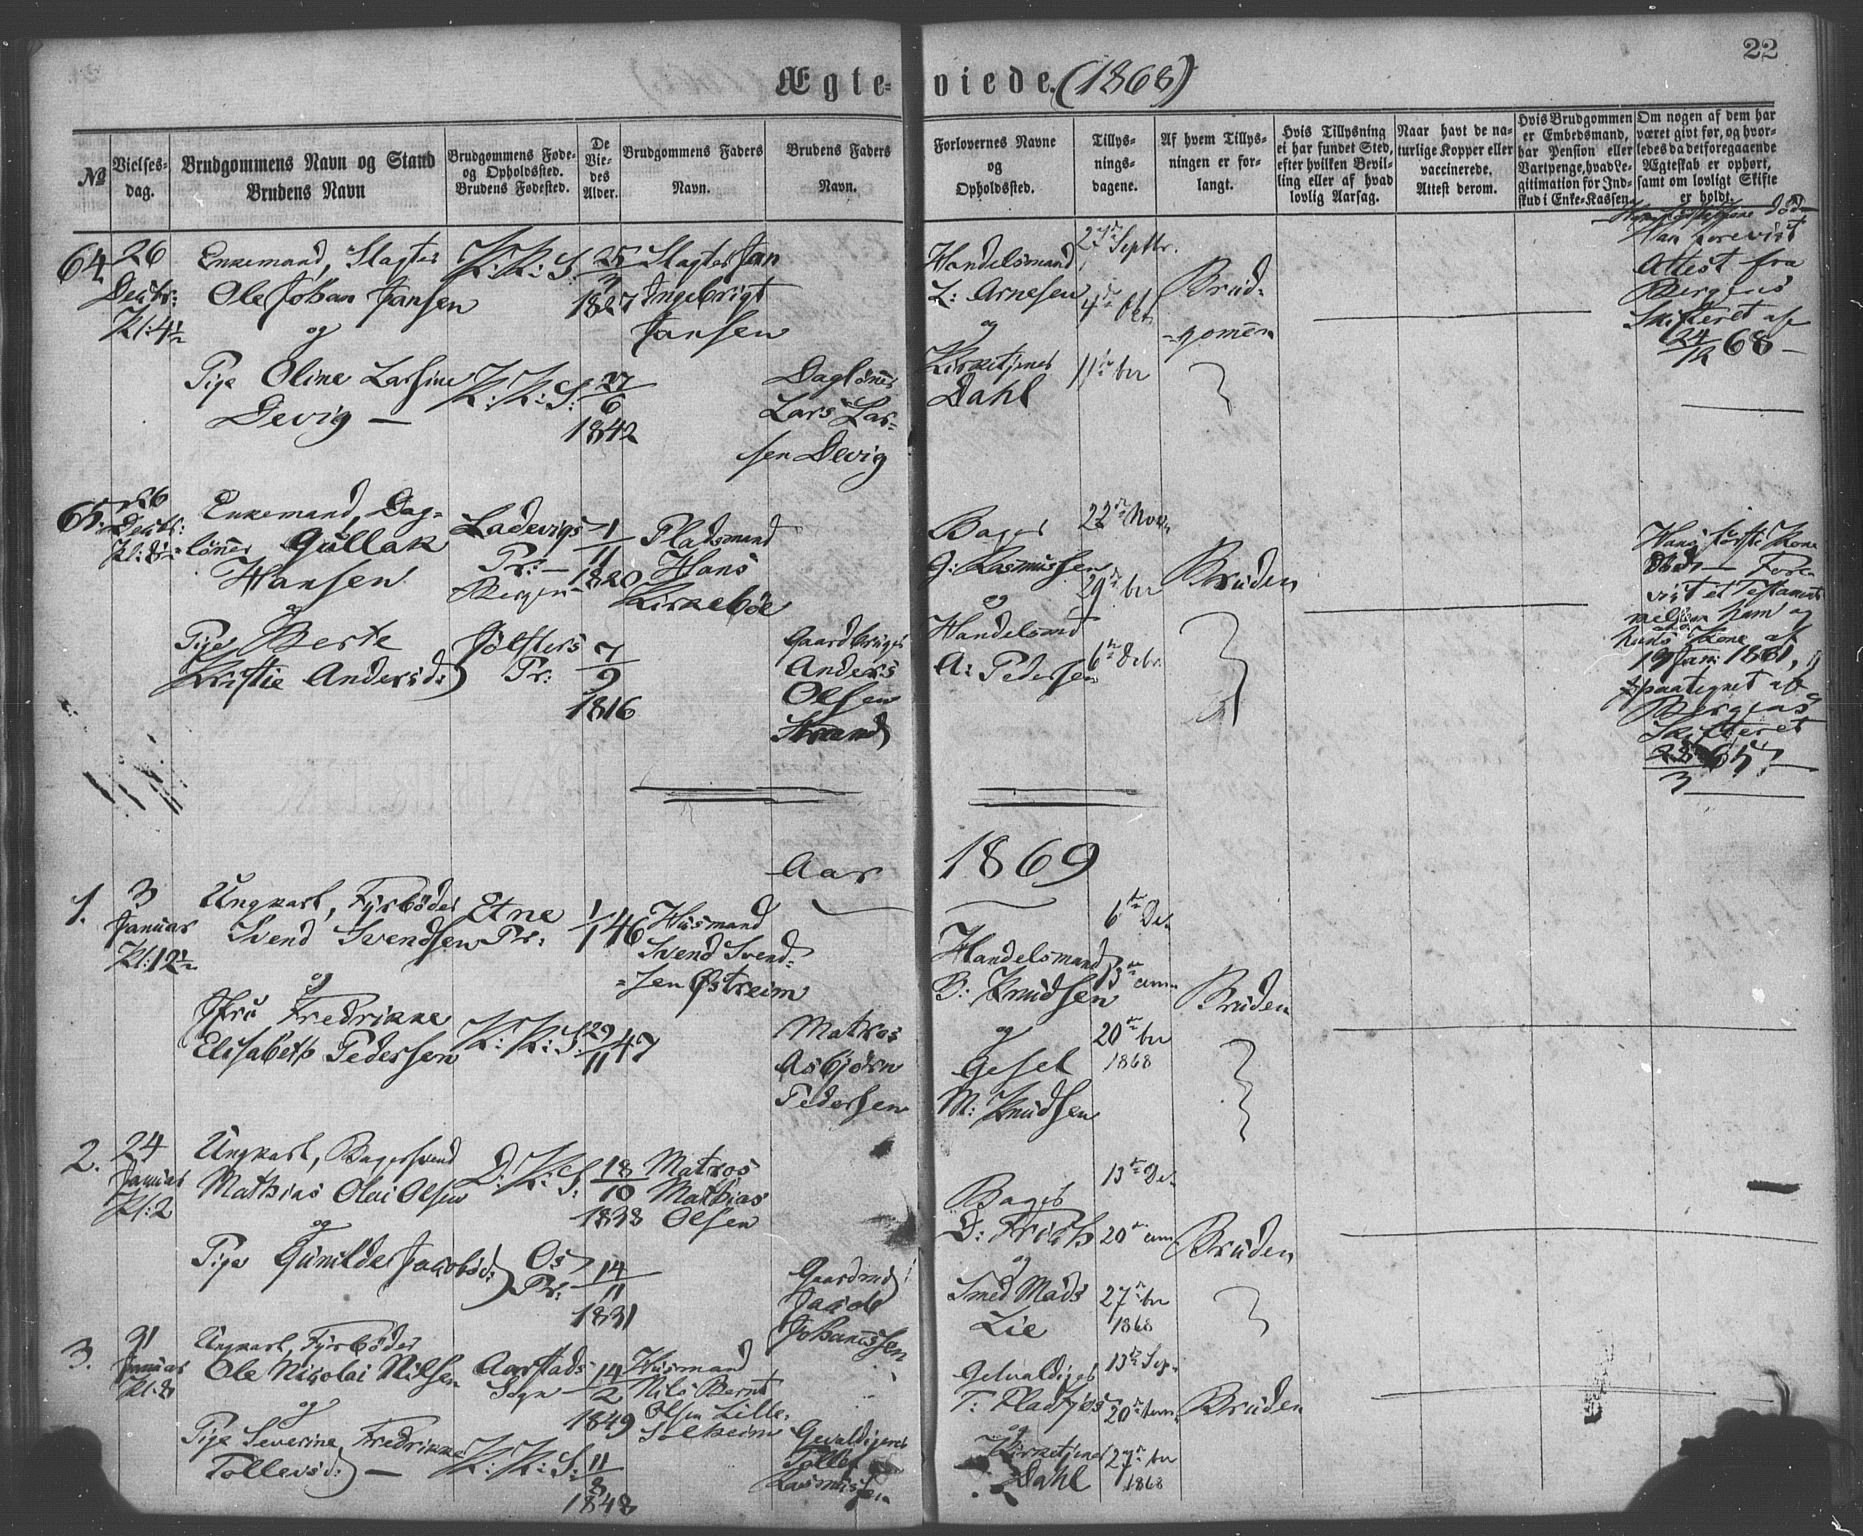 22
Ægte- viede. (1868)
№
Vielses-
dag.
Brudgommens Navn og Stand
Brudens Navn
Brudgommens Føde-
og Opholdssted.
Brudens Fødested.
De
Vie-
des
Alder.
Brudgommens Faders
Navn.
Brudens Faders
Navn.
Forlovernes Navne
og
Opholdssted.
Tillys-
nings-
dagene.
Af hvem Tillys-
ningen er for-
langt.
Hvis Tillysning
ei har fundet Sted,
efter hvilken Bevil-
ling eller af hvad
lovlig Aarsag.
Naar havt de na-
turlige Kopper eller
vaccinerede.
Attest derom.
Hvis Brudgommen
er Embedsmand,
har Pension eller
Vartpenge, hvad Le-
gitimation for Ind-
skud i Enke-Kassen.
Om nogen af dem har
været givt før, og hvor-
ledes da det foregaaende
Ægteskab er ophørt,
samt om lovligt Skifte
er holdt.
64
26
Decbr:
Kl: 4½
Enkemand, Slagter
Ole Johan Jansen
og
Pige Oline Larsine
Devig —
K: K: S:
K: K: S:
1827
27/6
1842
Slagter Jan
Ingebrigt
Jansen
Dagløner
Lars Lar-
sen Devig
Handelsmand
L: Arnesen
og
Kirketjener
Dahl
27de Septbr.
4de Oktr.
11te br
Brud-
gomen
død
Han forevist
Attest fra
Bergens
Skifteret af
68 —
65.
26
Decbr:
Kl: 8½
Enkemand, Dag-
løner Gullak
Hansen
og
Pige Berte
Kristie Andersd:
Ladevigs
Pr: —
Bergen
Jølsters
Pr:
1/11
1820
7/9
1816
Pladsmand
Hans
Kirkebøe
Gaardbruger
Anders
Olsen
Strand
Bager
G: Rasmussen
og
Handelsmd
A: Pedersen
22de Novbr
29de br
6te Debr.
Bruden
Hans første Kone
død — Fore-
vist et Testament
mellem ham og
hans Kone af
19 Jan: 1861,
paategnet af
Bergens
Skifteret
65. —
Aar 1869
1.
3
Januar
Kl: 12½
Ungkarl, Fyrbøder
Svend Svendsen
og
Fredrikke
Elisabeth Pedersen
Etne
Pr:
K: K: S:
1/1 46
29/11 47
Husmand
Svend Svend-
-sen Østreim
Matros
Asbjørn
Pedersen
Handelsmand
B: Knudsen
og
Gesel
M: Knudsen
6te De.
13te
20de br
1868
Bruden
2.
24
Januar
Kl: 2
Ungkarl, Bagersvend
Mathias Olai Olsen
og
Pige Gunilde Jacobsd:
D: K: S:
Os
Pr:
18/10
1838
14/11
1831
Matros
Mathias
Olsen
Gaardmd
Jacob
Johannessen
Bager
D: Frich
og
Smed Mads
Lie
13de De.
20de
27de br
1868
Bruden
3.
31
Januar
Kl: 8
Ungkarl, Fyrbøder
Ole Nikolai Nilsen
og
Pige Severine Fredrikke
Tollevsd: —
Aarstads
Sogn
K: K: S:
14/2
1849
11/8
1848
Husmand
Nils Bernt
Olsen Lille-
Solheim
Gevaldiger
Tollef
Rasmussen
Gevaldiger
T:
og
Kirketjener
Dahl
13de Sep.
20de
27de br
1868
Bruden